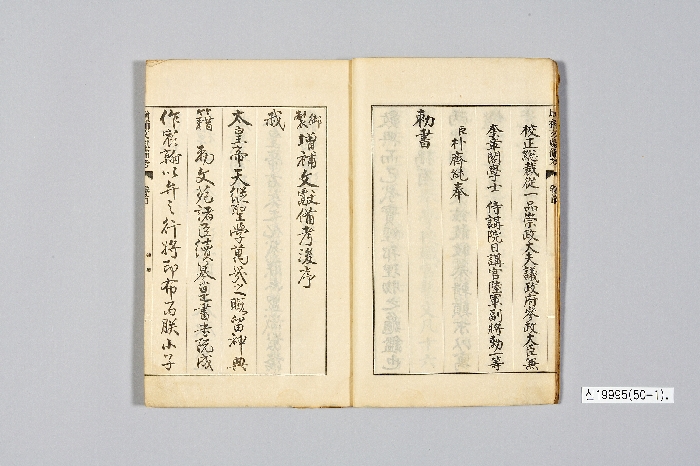 校正總裁從一品崇政大夫議政府參政大臣兼
奎章閣學士 侍講院日講官陸軍副將勳一等
臣朴齊純奉
勅書
御製增補文獻備考後序
我
太皇帝天縱聖學萬幾之暇留神典
籍 勅文苑諸臣續纂是書書旣成
作宸翰以弁之行將印布而朕小子
增補文獻備考
스19995(50-1).